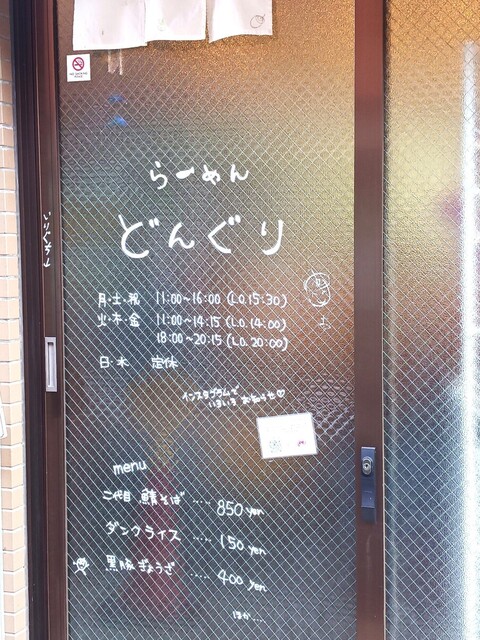 らーめん
どんぐり
月・土・祝 11:00~16:00 (L.O.15:30)
火・木・金 11:00~14:15 (L.O.14:00)
18:00~20:15 (L.O.20:00)
日・水 定休
インスタグラムで
いろいろ お知らせ♡
menu
二代目 鯖そば ..... 850 yen
ダンクライス ..... 150 yen
黒豚ぎょうざ ..... 400 yen
ほか...